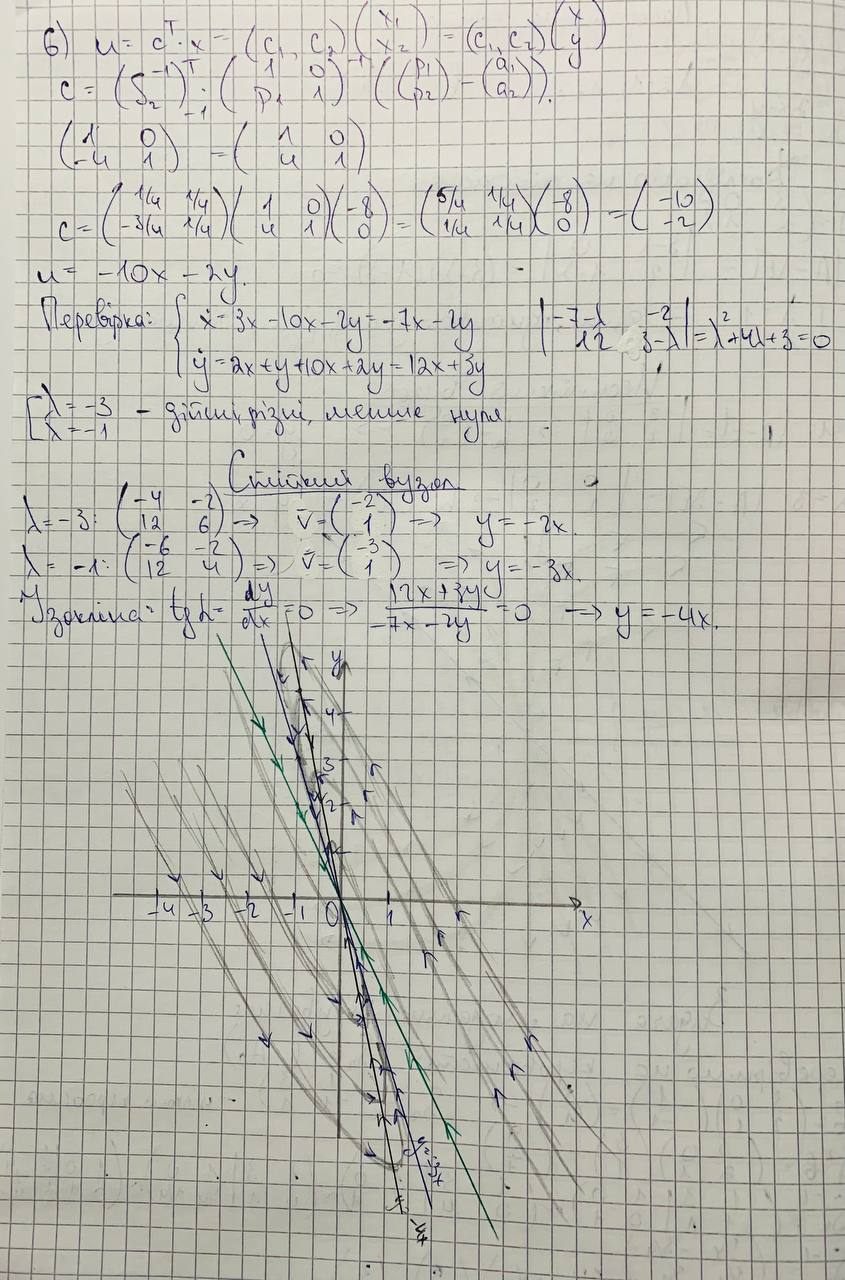 6) u = cᵀ·x = (c₁, c₂) (x₁ x₂) = (c₁, c₂) (x y)
c = (S₂⁻¹)ᵀ · (1 0 p₁ 1)⁻¹ ((p₁ p₂) − (a₁ a₂)).
(1 0 -4 1)⁻¹ = (1 0 4 1)
c = (1/4 1/4 -3/4 1/4) (1 0 4 1) (-8 0) = (5/4 1/4 1/4 1/4) (-8 0) = (-10 -2)
u = -10x - 2y.
Перевірка: { ẋ = 3x - 10x - 2y = -7x - 2y
ẏ = 2x + y + 10x + 2y = 12x + 3y
|-7-λ -2 12 3-λ| = λ² + 4λ + 3 = 0
[ λ = -3 λ = -1 - дійсні, різні, менше нуля
Стійкий вузол
λ = -3: (-4 -2 12 6) => v̄ = (-2 1) => y = -2x.
λ = -1: (-6 -2 12 4) => v̄ = (-3 1) => y = -3x.
Ізокліна: tg α = dy/dx = 0 => 12x + 3y / -7x - 2y = 0 => y = -4x.
y
4
3
2
-4 -3 -2 -1 0 1 x